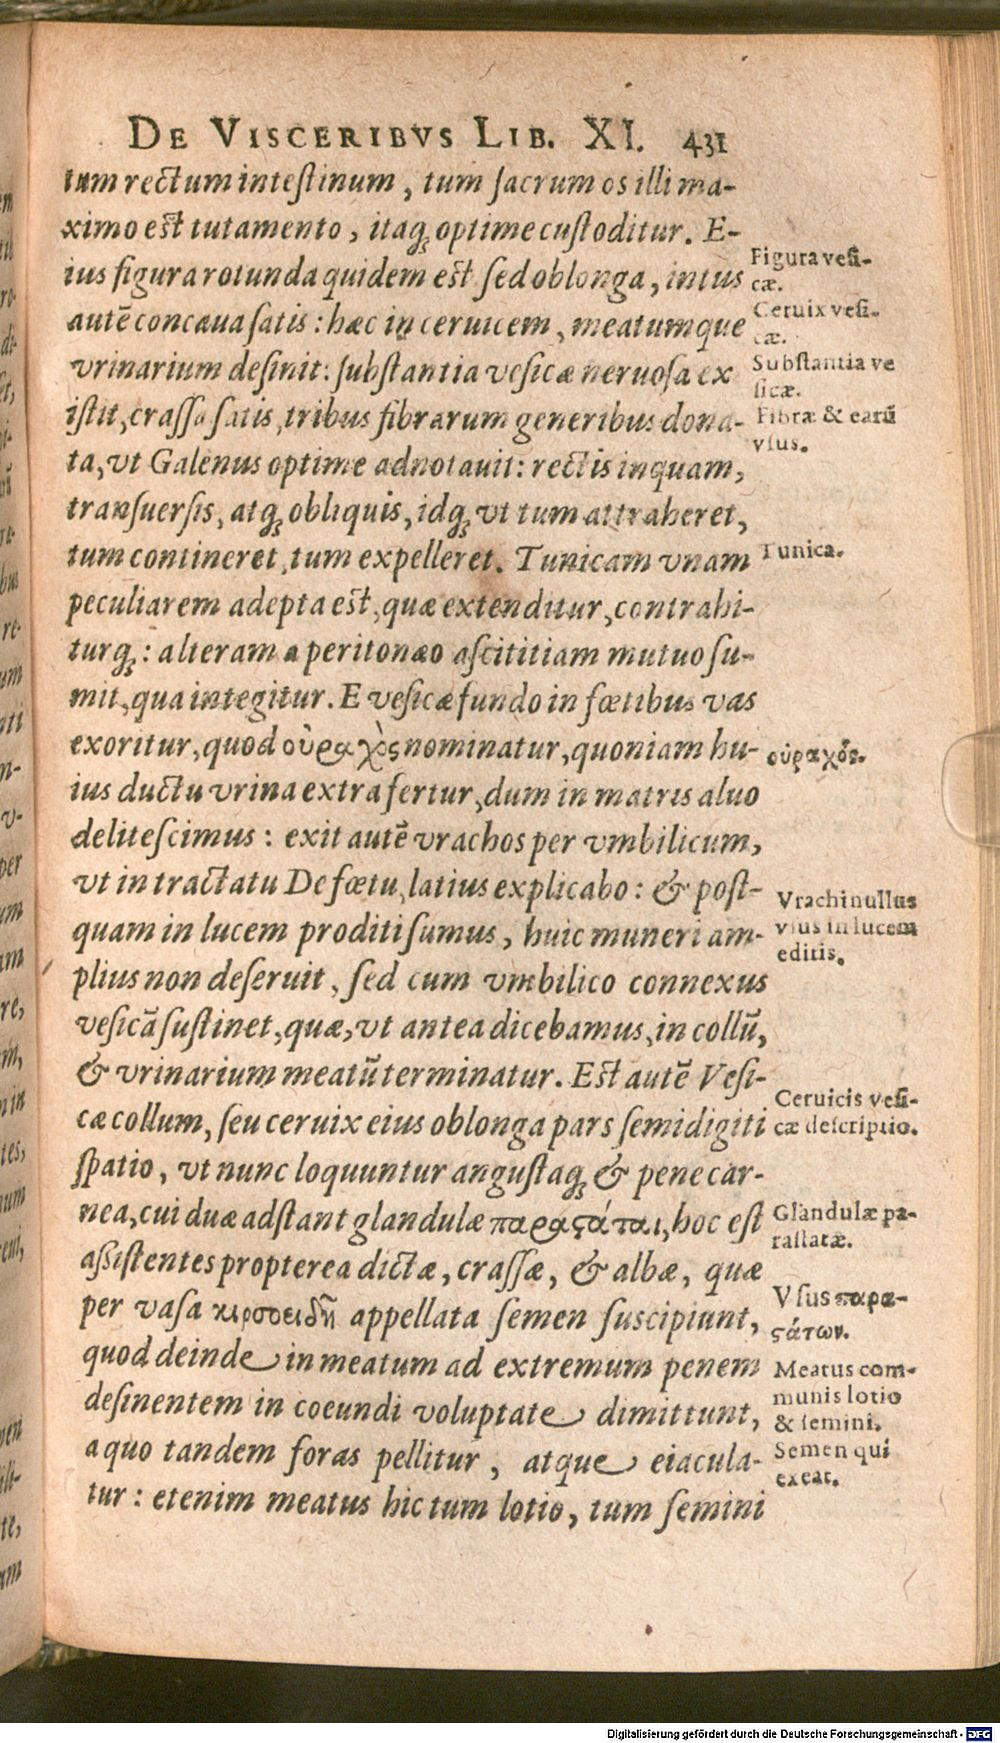 DE VISCERIBVS LIB. XI. 431
tum rectum intestinum, tum sacrum os illi ma-
ximo est tutamento, itaq; optime custoditur. E-
ius figura rotunda quidem est sed oblonga, intus
autē concaua satis: hæc in ceruicem, meatumque
vrinarium desinit: substantia vesicæ neruosa ex
istit, crassa satis, tribus fibrarum generibus dona-
ta, vt Galenus optime adnotauit: rectis inquam,
transuersis, atq; obliquis, idq; vt tum attraheret,
tum contineret, tum expelleret. Tunicam vnam
peculiarem adepta est, quæ extenditur, contrahi-
turq;: alteram a peritonæo ascititiam mutuo su-
mit, qua integitur. E vesicæ fundo in fœtibus vas
exoritur, quod οὐραχὸς nominatur, quoniam hu-
ius ductu vrina extra fertur, dum in matris aluo
delitescimus: exit autē vrachos per vmbilicum,
vt in tractatu De fœtu, latius explicabo: & post-
quam in lucem proditi sumus, huic muneri am-
plius non deseruit, sed cum vmbilico connexus
vesicā sustinet, quæ, vt antea dicebamus, in collū,
& vrinarium meatū terminatur. Est autē Vesi-
cæ collum, seu ceruix eius oblonga pars semidigiti
spatio, vt nunc loquuntur angustaq; & pene car-
nea, cui duæ adstant glandulæ παραςάται, hoc est
assistentes propterea dictæ, crassæ, & albæ, quæ
per vasa κιρσοειδῆ appellata semen suscipiunt,
quod deinde in meatum ad extremum penem
desinentem in coeundi voluptate dimittunt,
a quo tandem foras pellitur, atque eiacula-
tur: etenim meatus hic tum lotio, tum semini
Figura vesi-
cæ.
Ceruix vesi-
cæ.
Substantia ve
sicæ.
Fibræ & earū
vsus.
Tunica.
οὐραχός.
Vrachi nullus
vsus in lucem
editis.
Ceruicis vesi-
cæ descriptio.
Glandulæ pa-
rastatæ.
Vsus παρα-
ςάτων.
Meatus com-
munis lotio
& semini.
Semen qui
exeat.
Digitalisierung gefördert durch die Deutsche Forschungsgemeinschaft - DFG